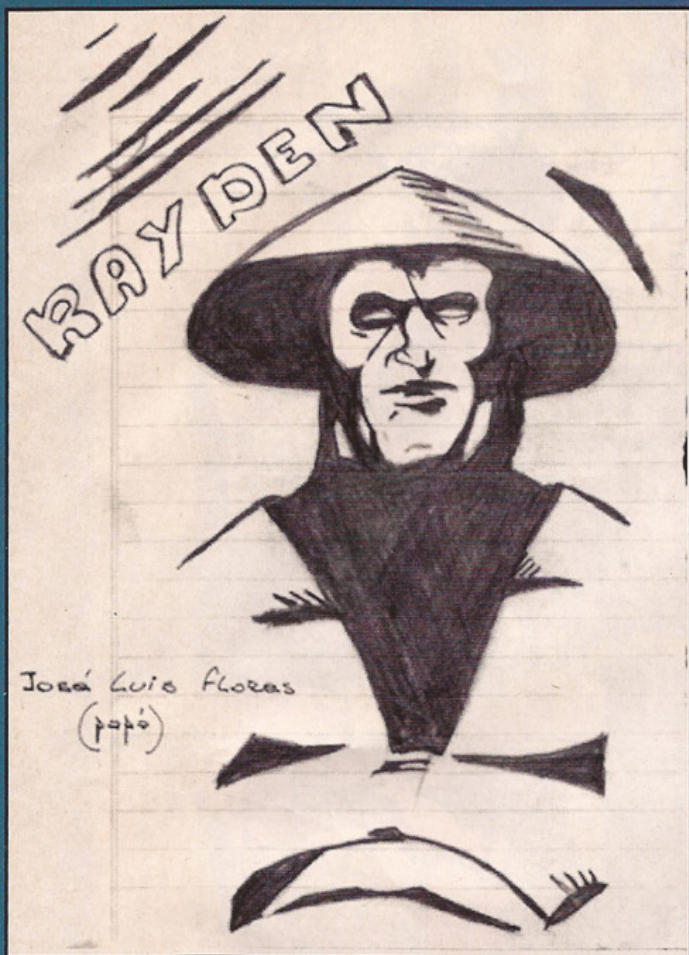 RAYDEN
José Luis Flores
(papá)